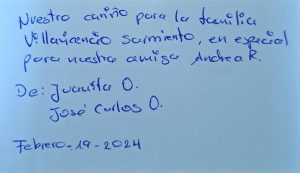 Nuestro cariño para la familia
Villavicencio Sarmiento, en especial
para nuestra amiga Andrea R.
De: Juanita O.
José Carlos O.
Febrero-19-2024